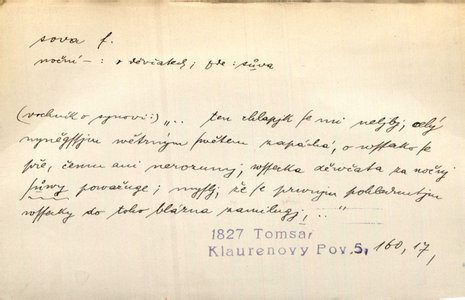 sova f.
noční —: o děvčatech; zde: sůva
(vrchník o synovi:) ".. ten chlapjk se mi nelibj, celý
nyněgssjm větrným světem zapáchá, o wssecko se
pře, čemu ani nerozumj, wssecka děwčata za nočnj
sůwy považuge; myslj, že se prwnjm pohledem
wssecky do toho blázna zamilugj, .."
1827 Tomsa,
Klaurenovy Pov. 5, 160, 17,